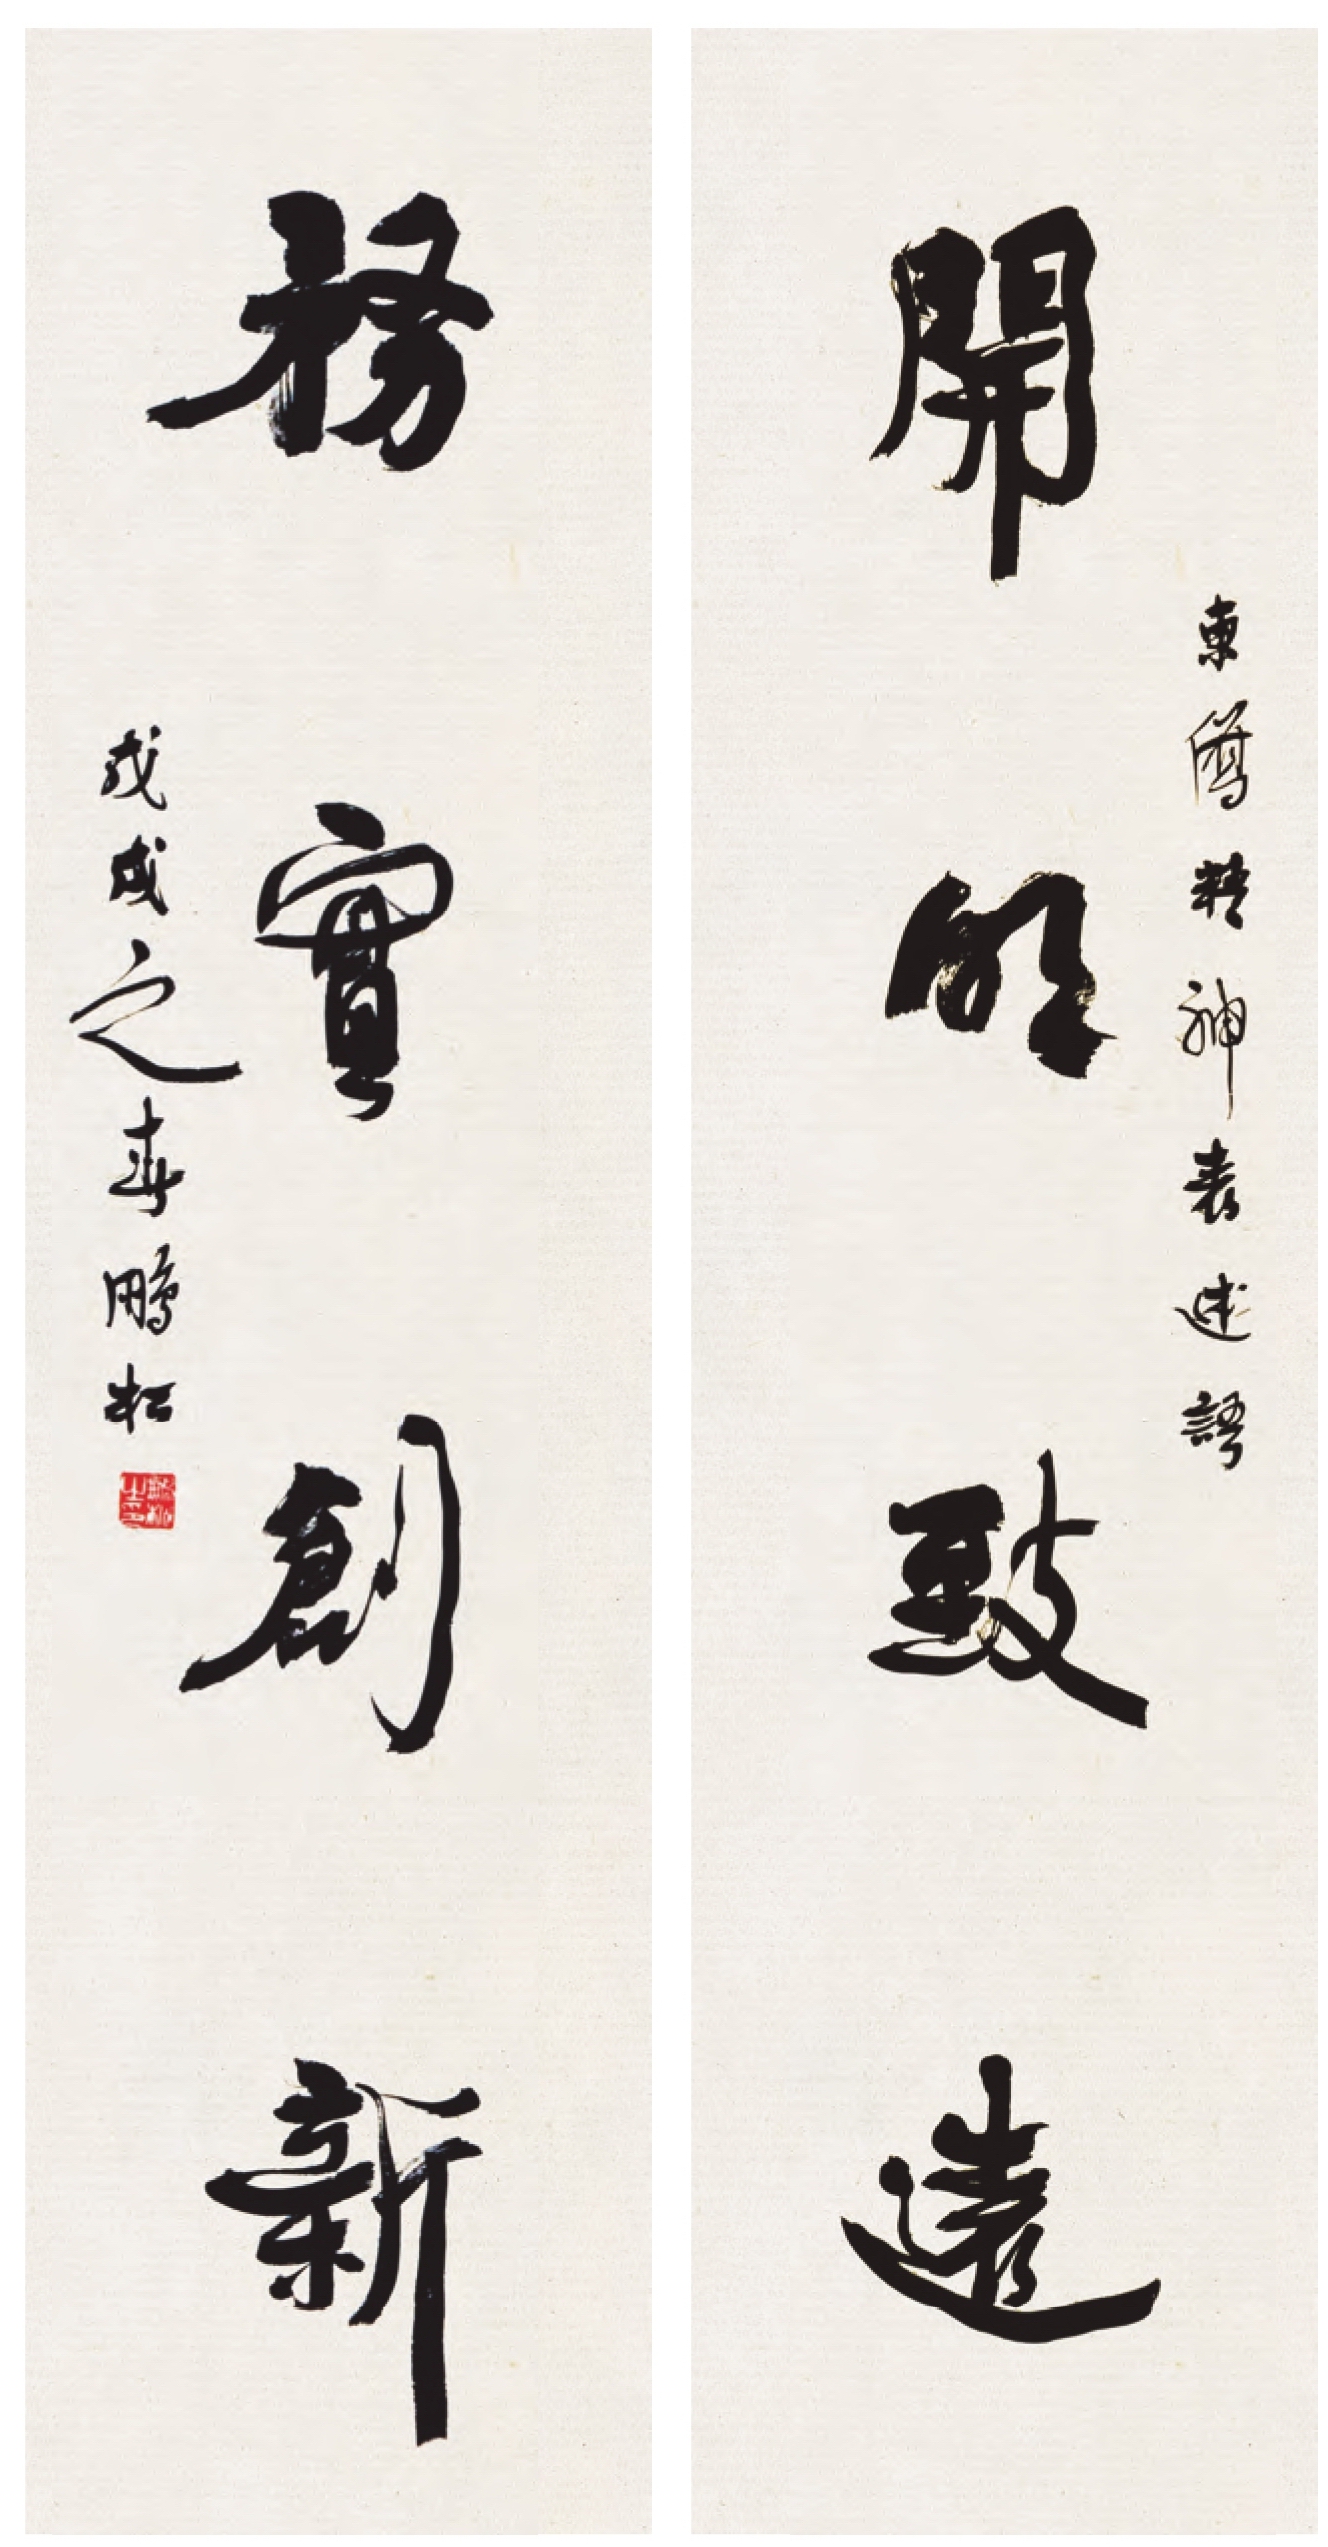 東精神表述語
開明致遠
務實創新
戊戌之春鵬松